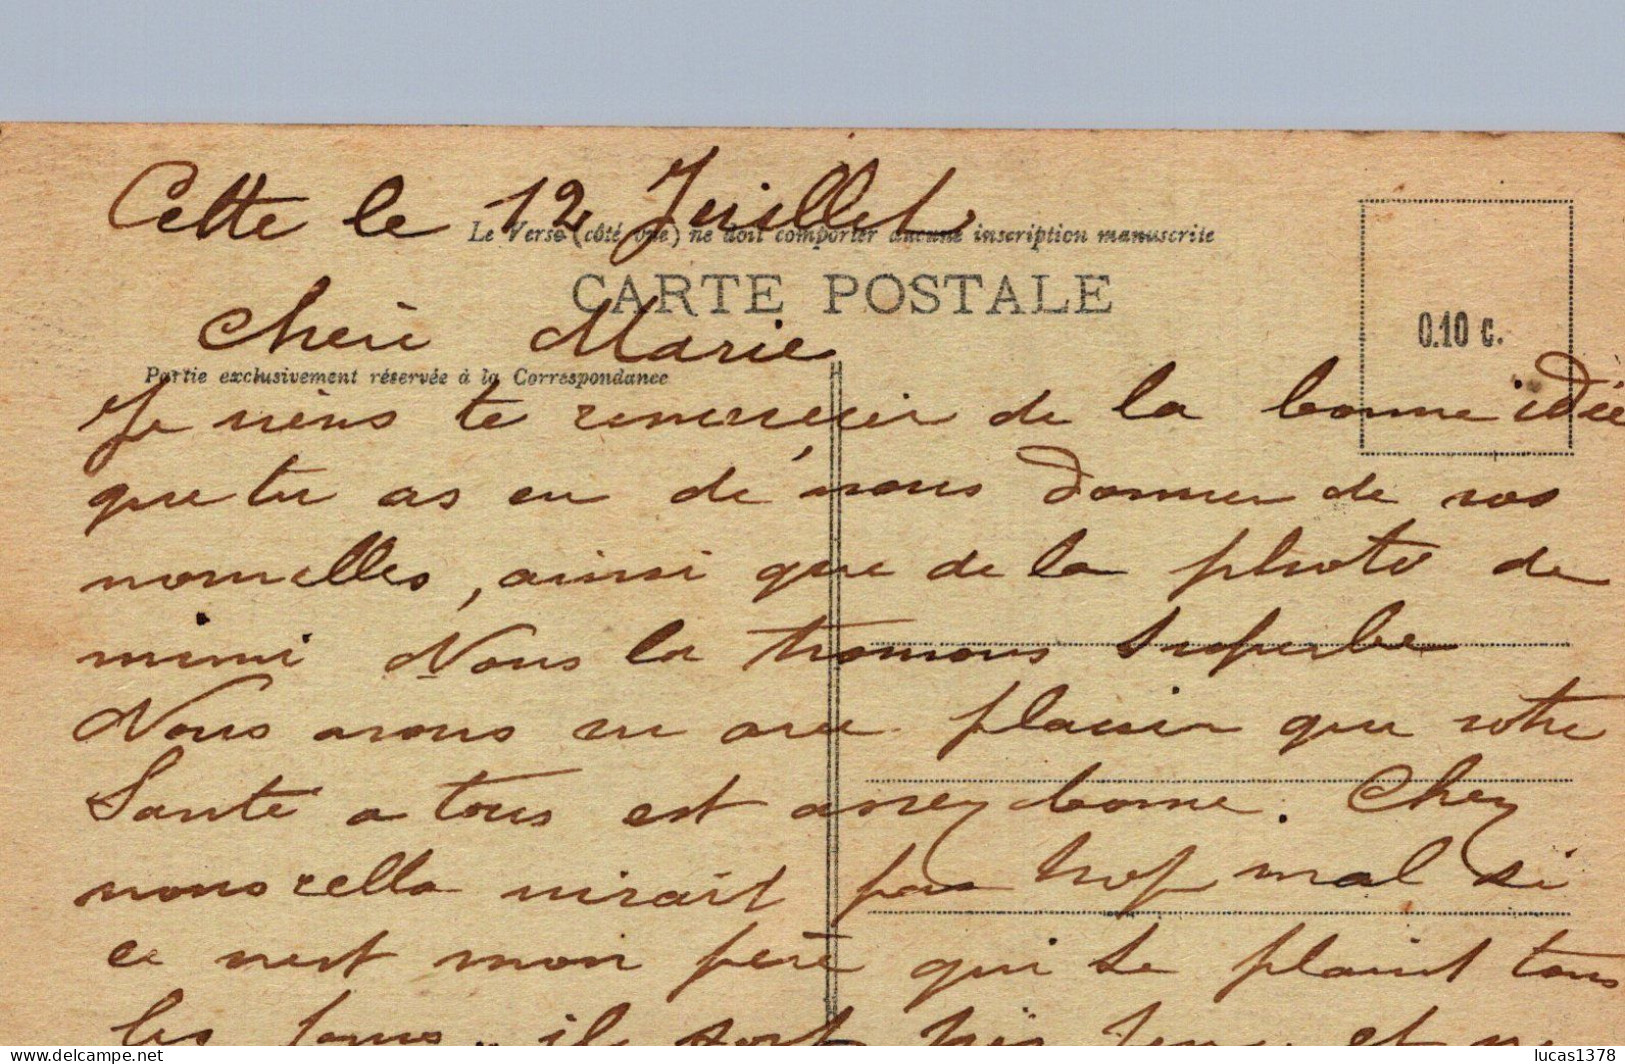 Cette le 12 Juillet
Le Verso (côté vue) ne doit comporter aucune inscription manuscrite
CARTE POSTALE
Cheré Marie
0.10 c.
Partie exclusivement réservée à la Correspondance
Je viens te remercier de la bonne idée
que tu as eu de nous donner de vos
nouvelles, ainsi que de la photo de
mimi Nous la trouvons superbe
Nous avons vu avec plaisir que votre
Santé a tous est assez bonne. Chez
nous cella nirait pas trop mal si
ce nest mon pere qui se plaint tous
les jours, il sort
delcampe.net
lucas1378